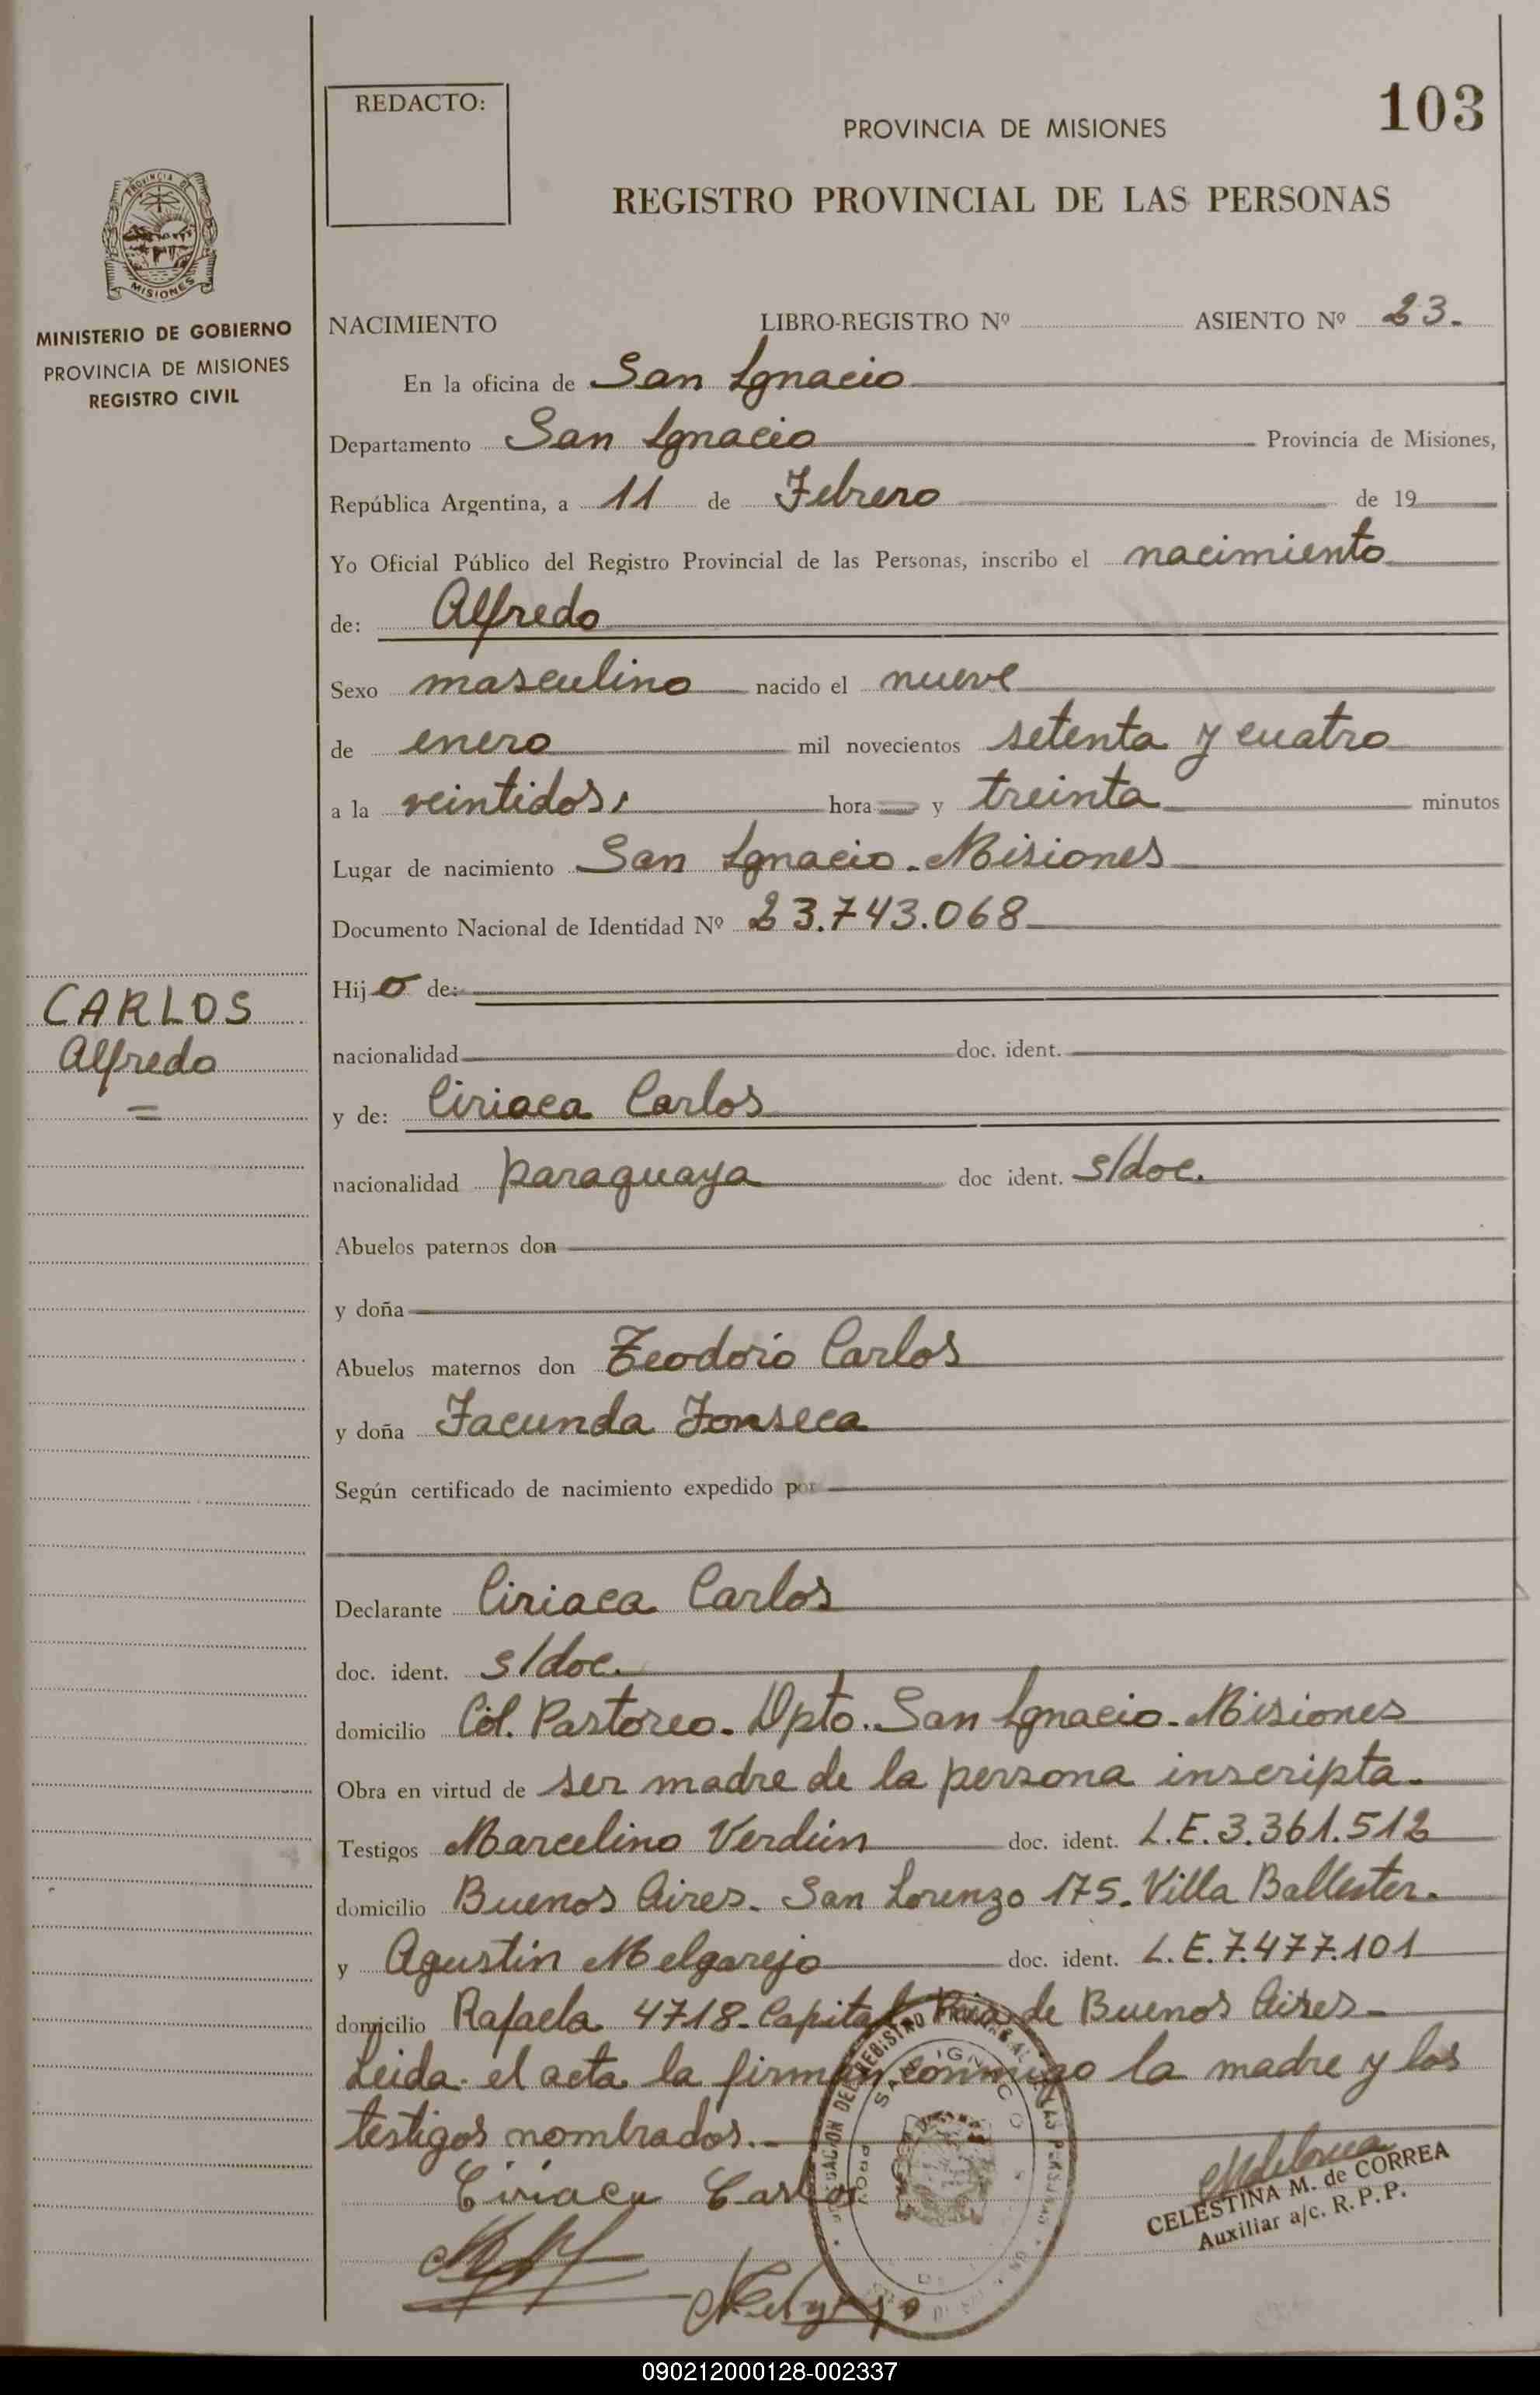 REDACTO:
103
PROVINCIA DE MISIONES
REGISTRO PROVINCIAL DE LAS PERSONAS
PROVINCIA DE
MISIONES
MINISTERIO DE GOBIERNO
PROVINCIA DE MISIONES
REGISTRO CIVIL
NACIMIENTO LIBRO-REGISTRO Nº ASIENTO Nº 23.
En la oficina de San Ignacio
Departamento San Ignacio Provincia de Misiones,
República Argentina, a 11 de Febrero de 19
Yo Oficial Público del Registro Provincial de las Personas, inscribo el nacimiento
de: Alfredo
Sexo masculino nacido el nueve
de enero mil novecientos setenta y cuatro
a la veintidos, hora y treinta minutos
Lugar de nacimiento San Ignacio. Misiones
Documento Nacional de Identidad Nº 23.743.068
Hijo de:
CARLOS
Alfredo
nacionalidad doc. ident.
y de: Ciriaca Carlos
nacionalidad paraguaya doc ident. s/doc.
Abuelos paternos don
y doña
Abuelos maternos don Teodoro Carlos
y doña Facunda Fonseca
Según certificado de nacimiento expedido por
Declarante Ciriaca Carlos
doc. ident. s/doc.
domicilio Col. Pastoreo. Dpto. San Ignacio. Misiones
Obra en virtud de ser madre de la persona inscripta.
Testigos Marcelino Verdún doc. ident. L.E. 3.361.512
domicilio Buenos Aires. San Lorenzo 175. Villa Ballester.
y Agustin Melgarejo doc. ident. L.E. 7.477.101
domicilio Rafaela 4718. Capital Pcia de Buenos Aires
Leida el acta la firman conmigo la madre y los
testigos nombrados.
Ciriaca Carlos
CELESTINA M. de CORREA
Auxiliar a/c. R. P. P.
Melgarejo
090212000128-002337